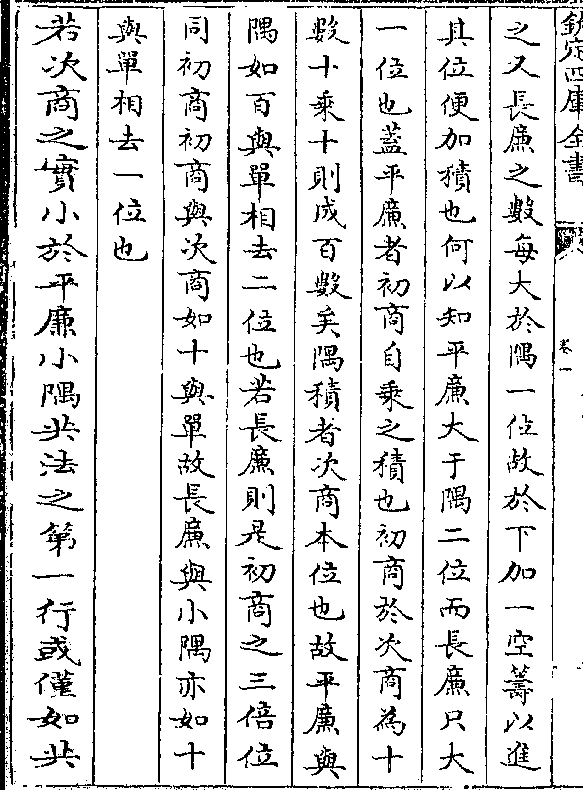 欽定四庫全書
卷一
之又長廉之數每大於隅一位故於下加一空籌以進
其位便加積也何以知平廉大于隅二位而長廉只大
一位也蓋平廉者初商自乘之積也初商於次商為十
數十乘十則成百數矣隅積者次商本位也故平廉與
隅如百與單相去二位也若長廉則是初商之三倍位
同初商初商與次商如十與單故長廉與小隅亦如十
與單相去一位也
若次商之實小於平廉小隅共法之第一行或僅如共